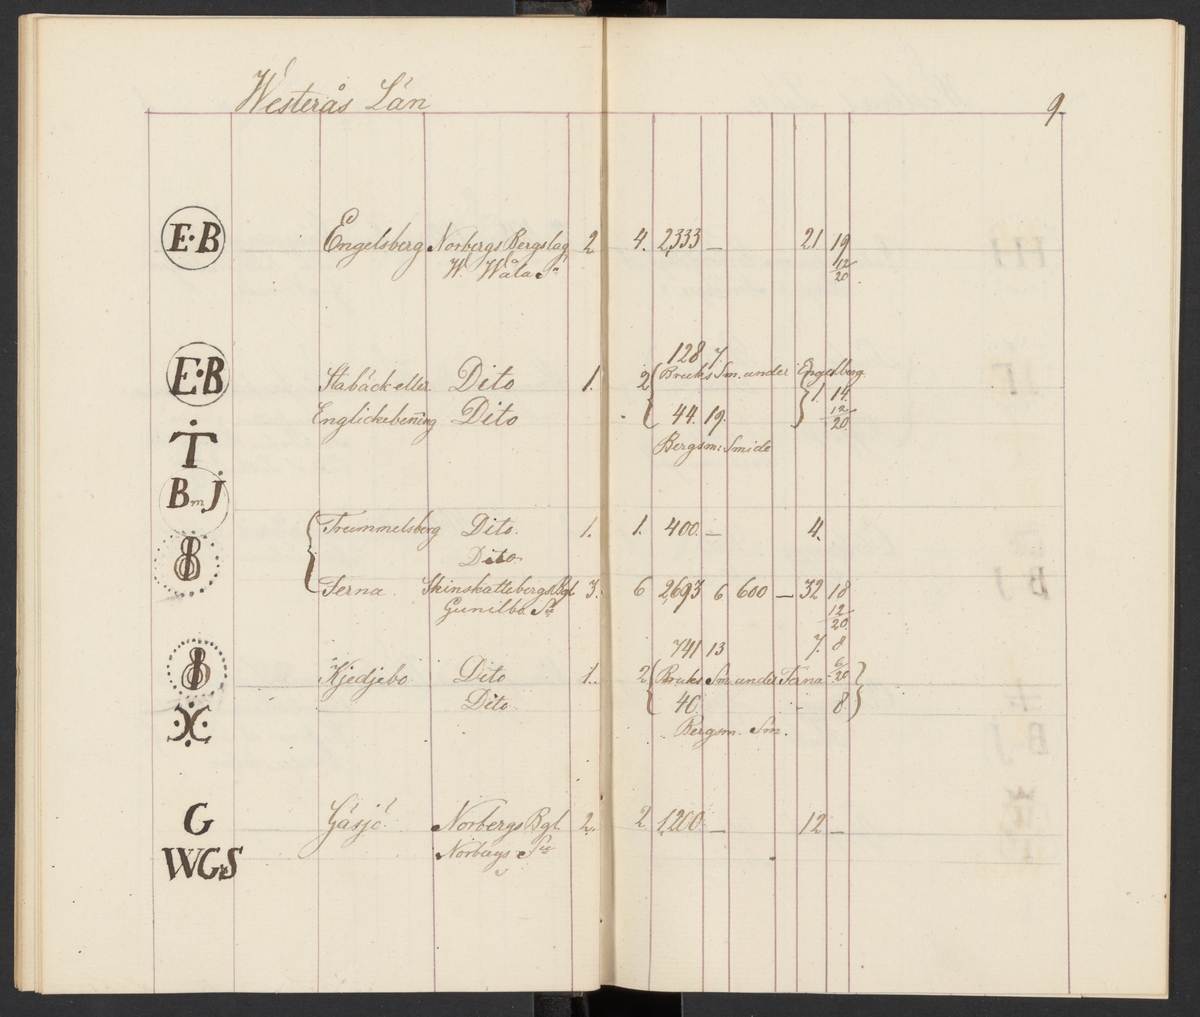 Westerås Län
9.
E·B Engelsberg Norbergs Bergslag 2 4. 2333 — 21 19
W. Wåla Sn 12/20
128 7.
E·B Stabäck eller Dito 1. 2 Bruks Sm. under Engelsberg
1. 14.
Englickebenning Dito 44. 19. 12/20
T Bergsm: Smide
BmJ
Trummelsberg Dito. 1. 1. 400. — 4.
Dito
Ferna Skinskattebergs Bgl 3. 6 2693 6 600 — 32 18
Gunilbo Sn 12/20
741 13 7. 8
Kjedjebo Dito 1. 2 Bruks Sm. under Ferna 6/20
Dito 40. - 8.
Bergsm. Sm.
G Gäsjö Norbergs Bgl. 2. 2 1,200. — 12 —
WGS Norbergs Sn